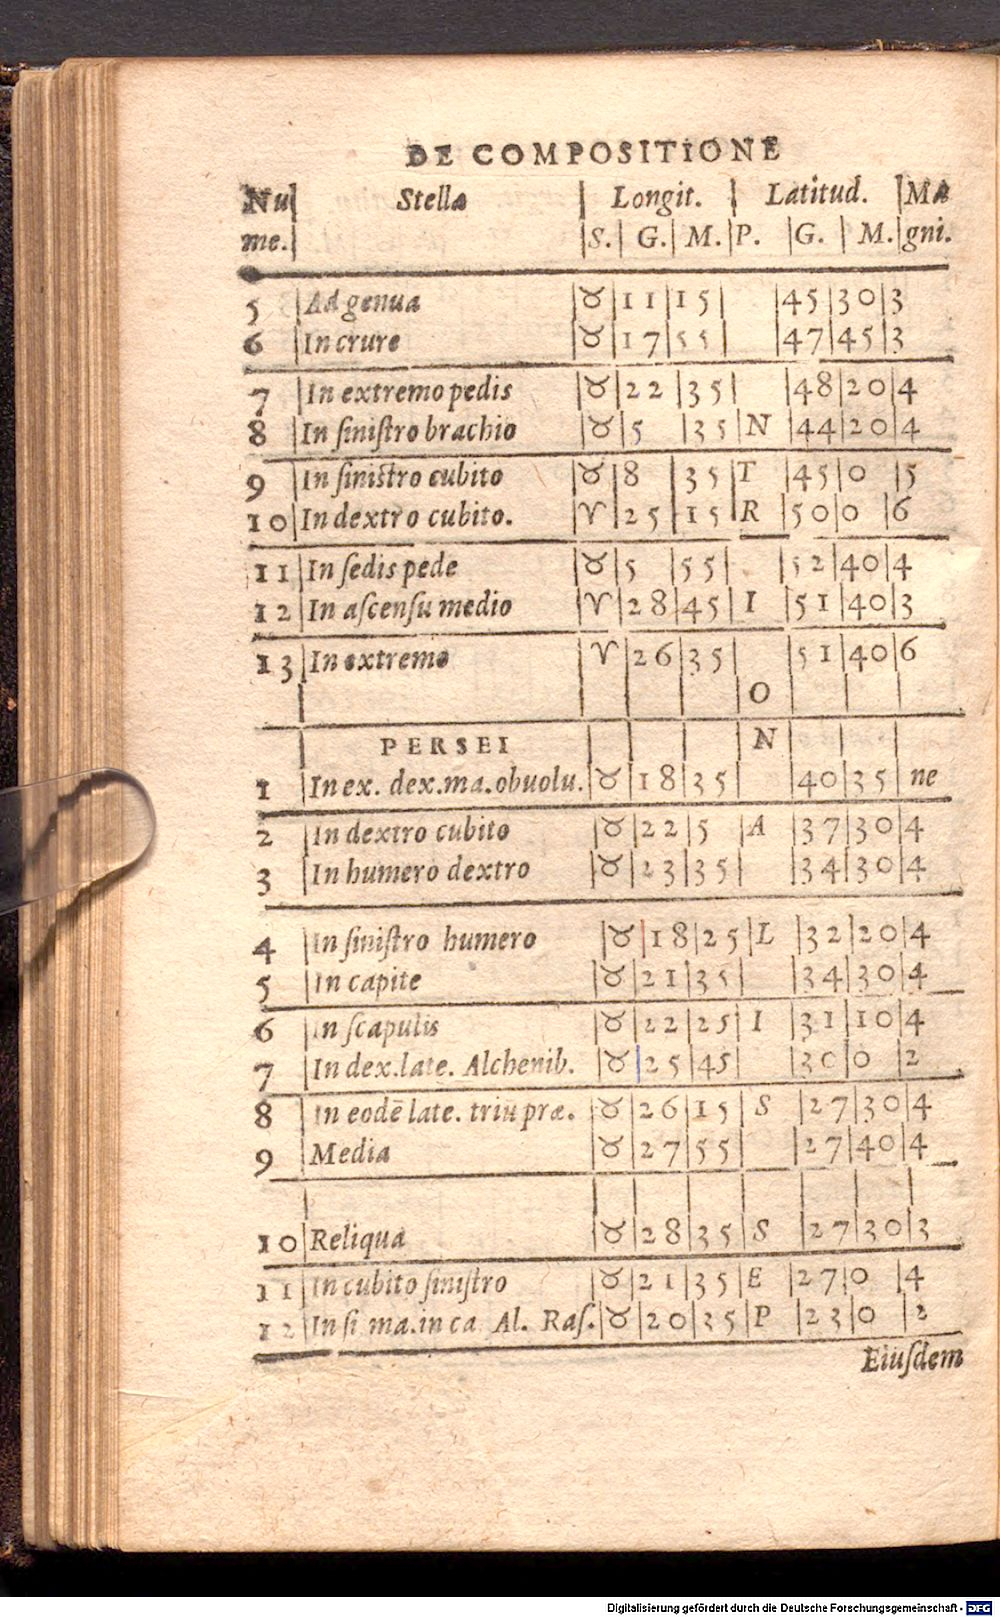 DE COMPOSITIONE
Nu| Stella | Longit. | Latitud. |Ma
me.| |S.| G.| M.|P. |G. | M.|gni.
5 |Ad genua |♉|11|15| |45|30|3
6 |In crure |♉|17|55| |47|45|3
7 |In extremo pedis |♉|22|35| |48|20|4
8 |In ſiniſtro brachio |♉|5 |35|N |44|20|4
9 |In ſiniſtro cubito |♉|8 |35|T |45|0 |5
10|In dextro cubito. |♈|25|15|R |50|0 |6
11|In ſedis pede |♉|5 |55| |52|40|4
12|In aſcenſu medio |♈|28|45|I |51|40|3
13|In extremo |♈|26|35| |51|40|6
O
PERSEI N
1 |In ex. dex.ma.obuolu.|♉|18|35| |40|35|ne
2 |In dextro cubito |♉|22|5 |A |37|30|4
3 |In humero dextro |♉|23|35| |34|30|4
4 |In ſiniſtro humero |♉|18|25|L |32|20|4
5 |In capite |♉|21|35| |34|30|4
6 |In ſcapulis |♉|22|25|I |31|10|4
7 |In dex.late. Alchenib. |♉|25|45| |30|0 |2
8 |In eodē late. triu præ. |♉|26|15|S |27|30|4
9 |Media |♉|27|55| |27|40|4
10|Reliqua |♉|28|35|S |27|30|3
11|In cubito ſiniſtro |♉|21|35|E |27|0 |4
12|In ſi ma.in ca Al. Raſ.|♉|20|35|P |23|0 |2
Eiuſdem
Digitalisierung gefördert durch die Deutsche Forschungsgemeinschaft - DFG